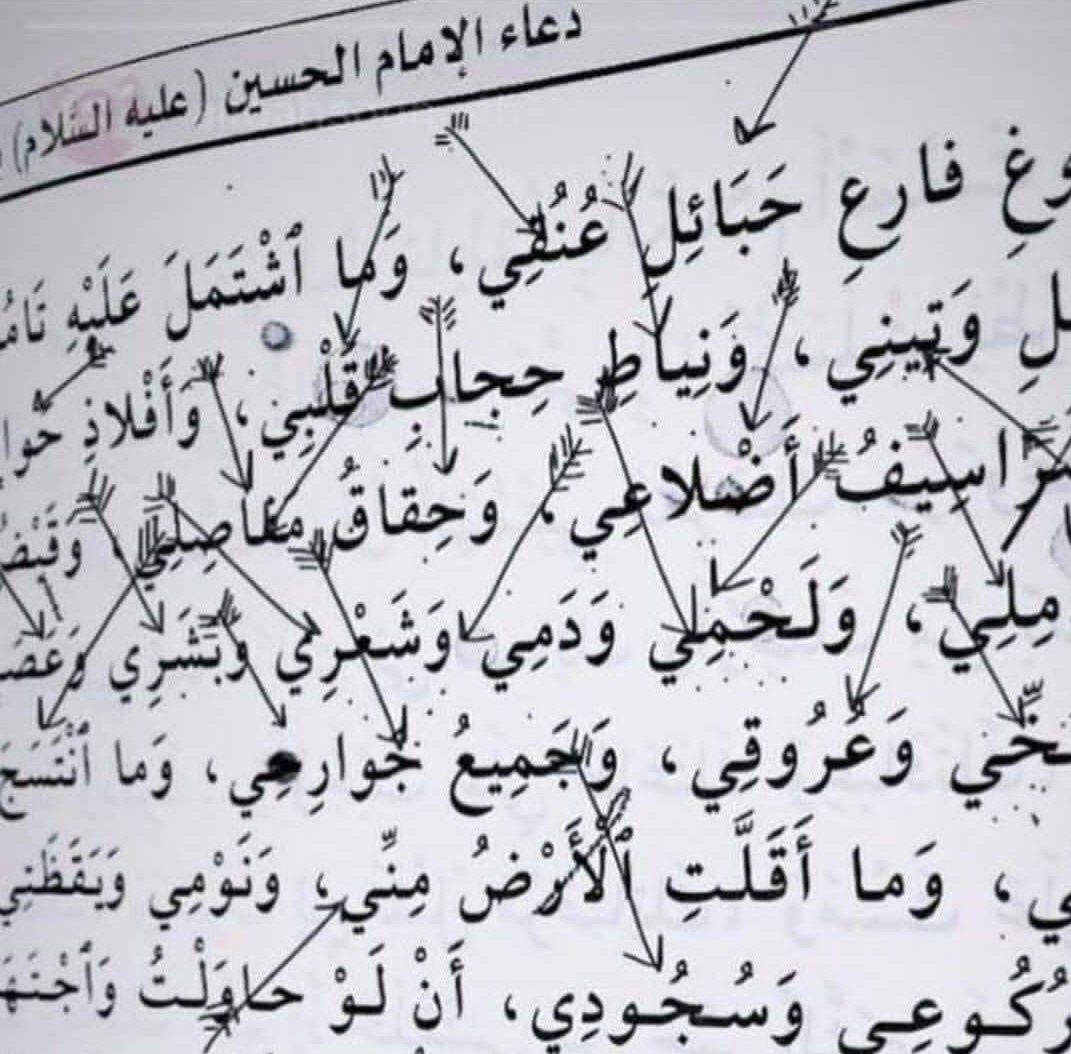 دعاء الإمام الحسين (عليه السّلام)
وغِ فارِعِ حَبَائِلِ عُنُقِي، وَمَا ٱشْتَمَلَ عَلَيْهِ
وَتِينِي، وَنِياطِ حِجابِ قَلْبِي، وَأَفْلاذِ
أَضْلاعِي، وَحِقاقُ مفاصِلِي،
وَلَحْمِي وَدَمِي وَشَعْرِي وَبَشَرِي
وَعُرُوقِي، وَجَمِيعُ جَوارِحِي، وَما ٱنْتَسَجَ
وَما أَقَلَّتِ ٱلأَرْضُ مِنِّي، وَنَوْمِي وَيَقَظَتِي
رُكُوعِي وَسُجُودِي، أَنْ لَوْ حاوَلْتُ